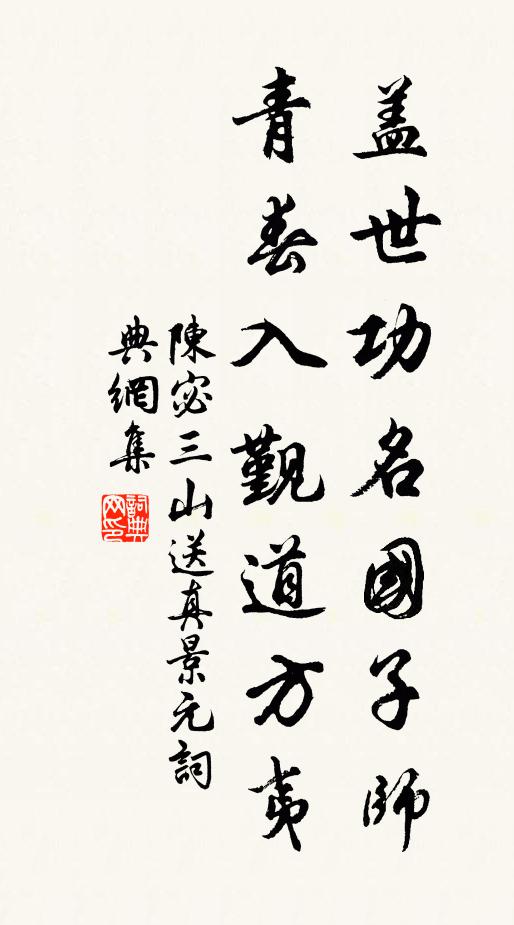 盖世功名國子師
青春入覲道方夷
陳宓三山送真景元詞
典網集
詞典網印